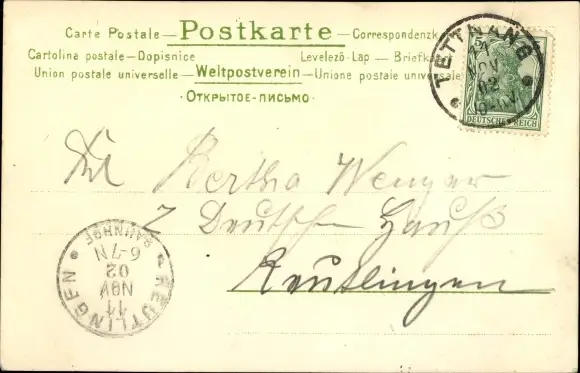 Carte Postale – Postkarte – Correspondenzk
Cartolina postale – Dopisnice Levelező-Lap – Briefka
Union postale universelle – Weltpostverein – Unione postale universale
· ОТКРЫТОЕ-ПИСЬМО ·
TETTNANG
NOV
02
DEUTSCHES REICH
Frl. Bertha Wenger
z Deutschen Haus
Reutlingen
REUTLINGEN
BAHNHOF
11
NOV
02
6-7N